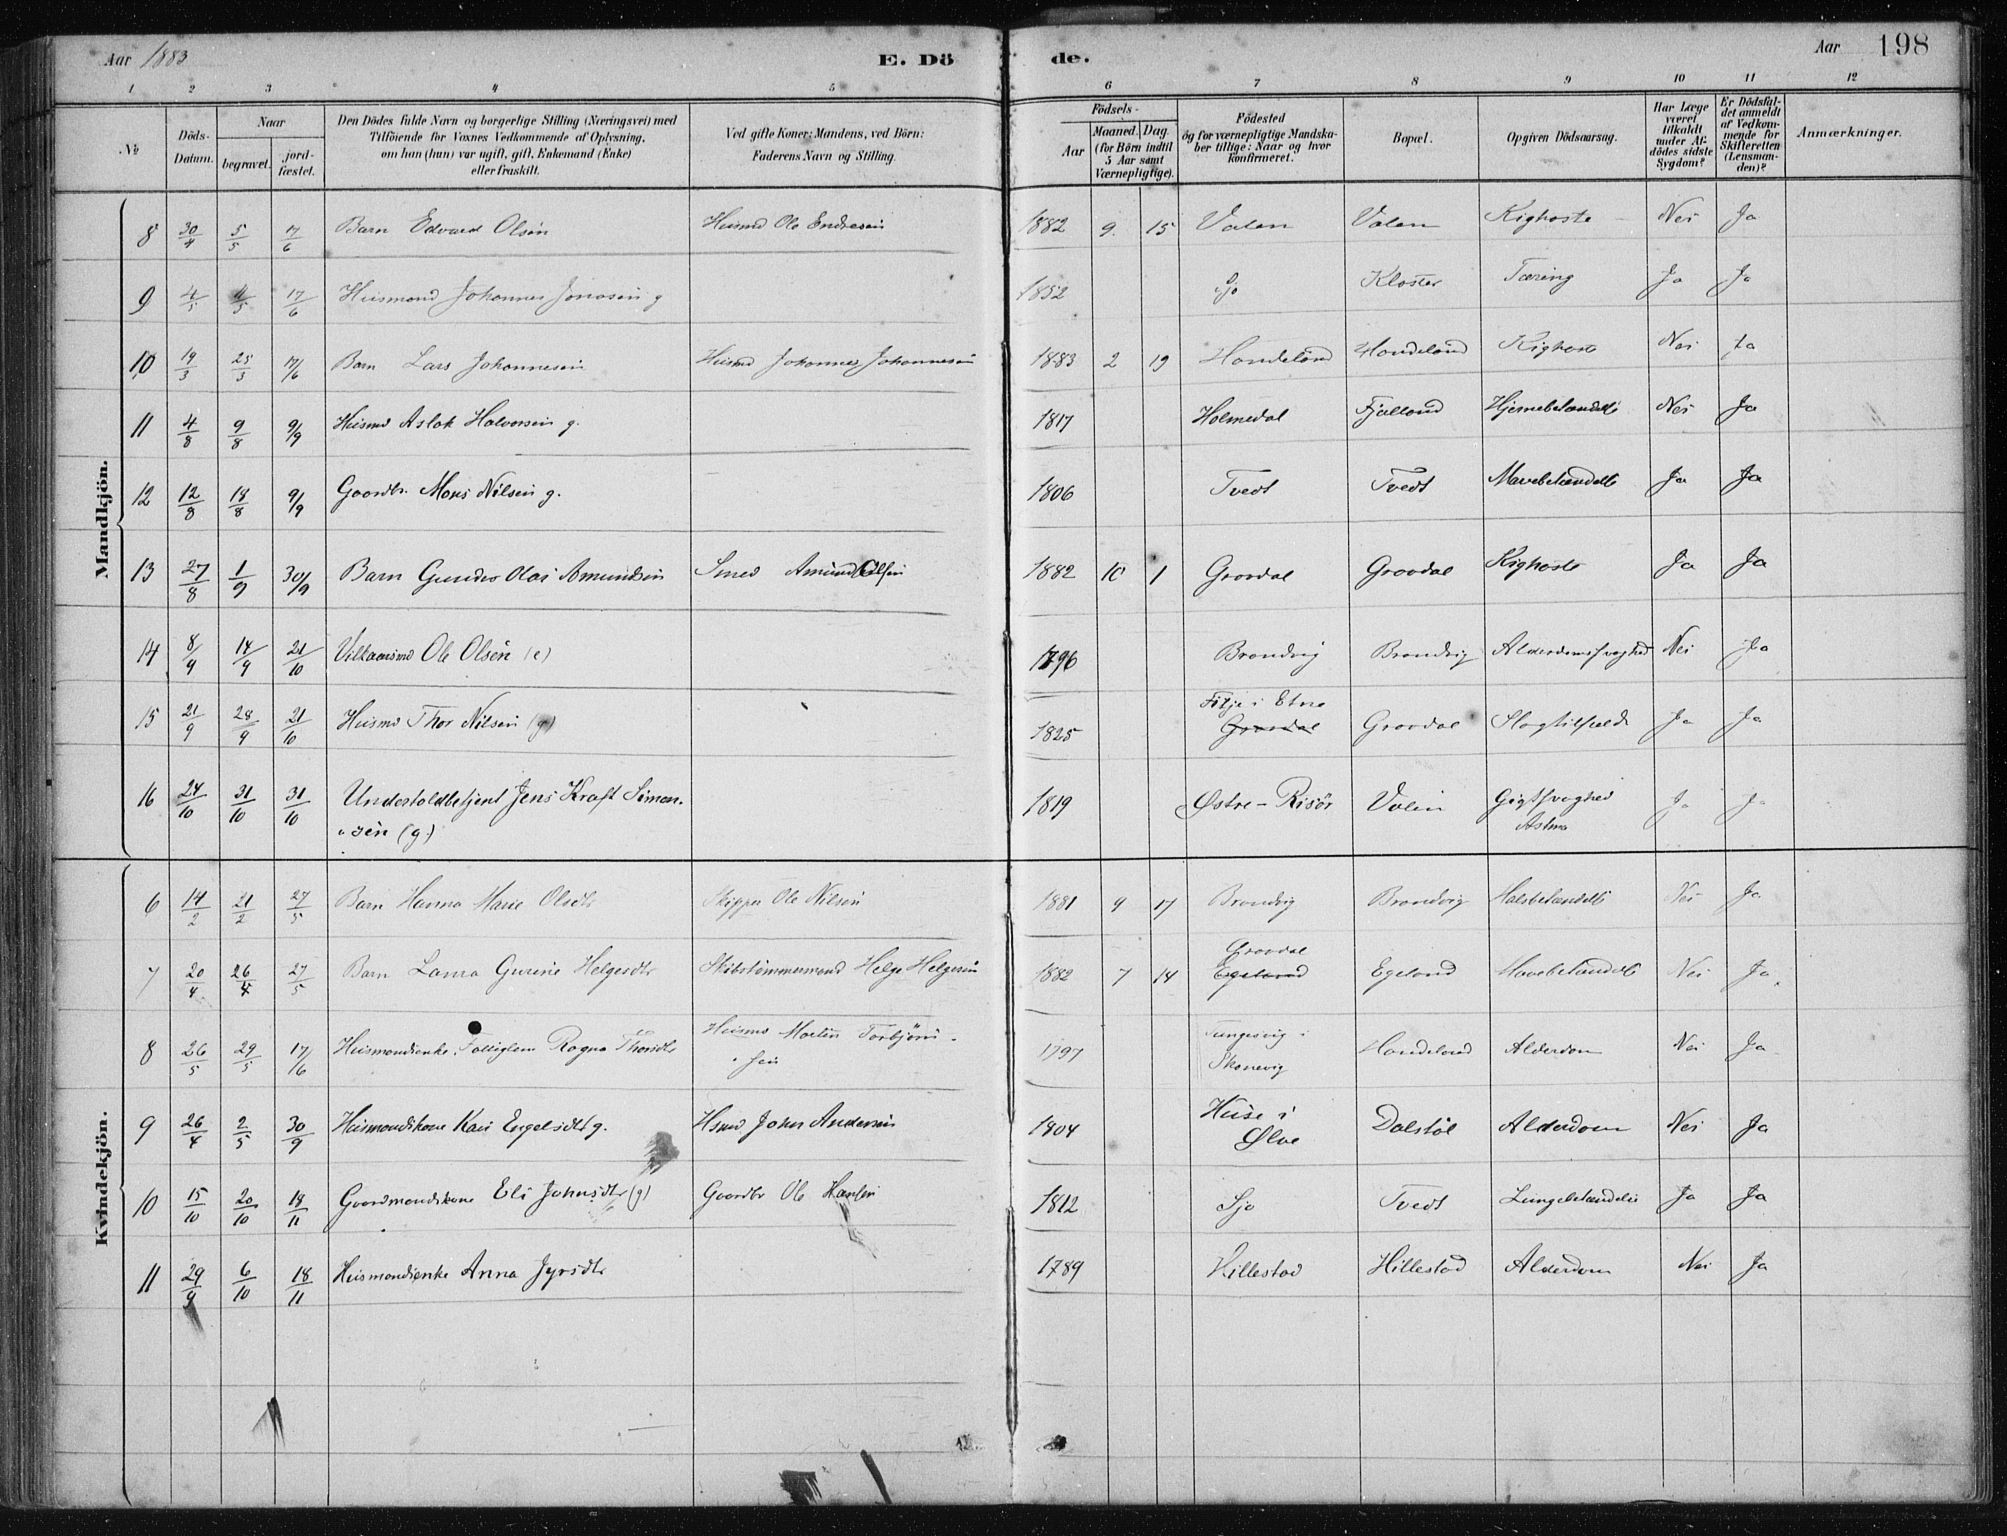 Aar 1883
E. Dö
de.
Aar 198
1 2 3 4 5 6 7 8 9 10 11 12
№
Döds-Datum.
Naar
begravet.
jord-fæstet.
Den Dödes fulde Navn og borgerlige Stilling (Næringsvei) med
Tilföiende for Voxnes Vedkommende af Oplysning.
om han (hun) var ugift, gift, Enkemand (Enke)
eller fraskilt.
Ved gifte Koner: Mandens, ved Börn:
Faderens Navn og Stilling.
Födsels-
Aar
Maaned. Dag
(for Börn indtil
5 Aar samt
Værnepligtige).
Födested
og for værnepligtige Mandska-
ber tillige: Naar og hvor
Konfirmeret.
Bopæl.
Opgiven Dödsaarsag.
Har Læge
været
tilkaldt
under Af-
dödes sidste
Sygdom?
Er Dödsfal-
det anmeldt
af Vedkom-
mende for
Skifteretten
(Lensman-
den)?
Anmærkninger.
Mandkjön.
8 30/4 5/5 17/6 Barn Edvard Olsen Huusmd Ole Endresen 1882 9. 15 Valen Valen Kighoste Nei Ja
9 4/5 4/5 17/6 Huusmand Johannes Jonasen g 1852 Sjo Kloster Tæring Ja Ja
10 19/3 25/3 17/6 Barn Lars Johannesen Huusmd Johannes Johannesen 1883 2 19 Handeland Handeland Kighoste Nei Ja
11 4/8 9/8 9/9 Huusmd Aslak Halvorsen g. 1817 Holmedal Fjælland Hjernebetændelse Nei Ja
12 12/8 18/8 9/9 Gaardbr. Mons Nilsen g. 1806 Tvedt Tvedt Mavebetændelse Ja Ja
13 27/8 1/9 30/9 Barn Gunder Olai Amundsen Smed Amund Olsen 1882 10 1 Gravdal Gravdal Kighoste Ja Ja
14 8/9 14/9 21/10 Vilkaarsmd Ole Olsen (e) 1796 Brandvig Brandvig Alderdomssvaghed Nei Ja
15 21/9 28/9 21/10 Huusmd Thor Nilsen (g) 1825 Fitje i Etne
Gravdal Gravdal Slagtilfælde Ja Ja
16 24/10 31/10 31/10 Undertoldbetjent Jens Kraft Simon-
sen (g.) 1819 Østre-Risör Valen Gigtsvaghed
Astma Ja Ja
Kvindekjön.
6 14/2 21/2 27/5 Barn Hanna Marie Olsdtr Skipper Ole Nilsen 1881 9 17 Brandvig Brandvig Halsbetændelse Nei Ja
7 20/4 26/4 27/5 Barn Laura Gurine Helgesdtr Skibstømmermand Helge Helgesen 1882 7 14 Gravdal
Egeland Egeland Mavebetændelse Nei Ja.
8 26/5 29/5 17/6 Huusmandsenke. Fattiglem Ragna Thorsdtr Huusmd Morten Torbjörn-
sen 1797 Tungesvig i
Skonevig Handeland Alderdom Nei Ja
9 26/4 2/5 30/9 Huusmandskone Kari Engelsdtr g. Hsmd John Andersen 1804 Huse i
Ølve Dalstöl Alderdom Nei Ja
10 15/10 20/10 18/11 Gaardmandskone Eli Johnsdtr (g) Gaardbr Ole Hansen 1812 Sjo Tvedt Lungebetændelse Ja Ja
11 29/9 6/10 18/11 Huusmandsenke Anna Jyrsdtr 1789 Hillestad Hillestad Alderdom Nei Ja